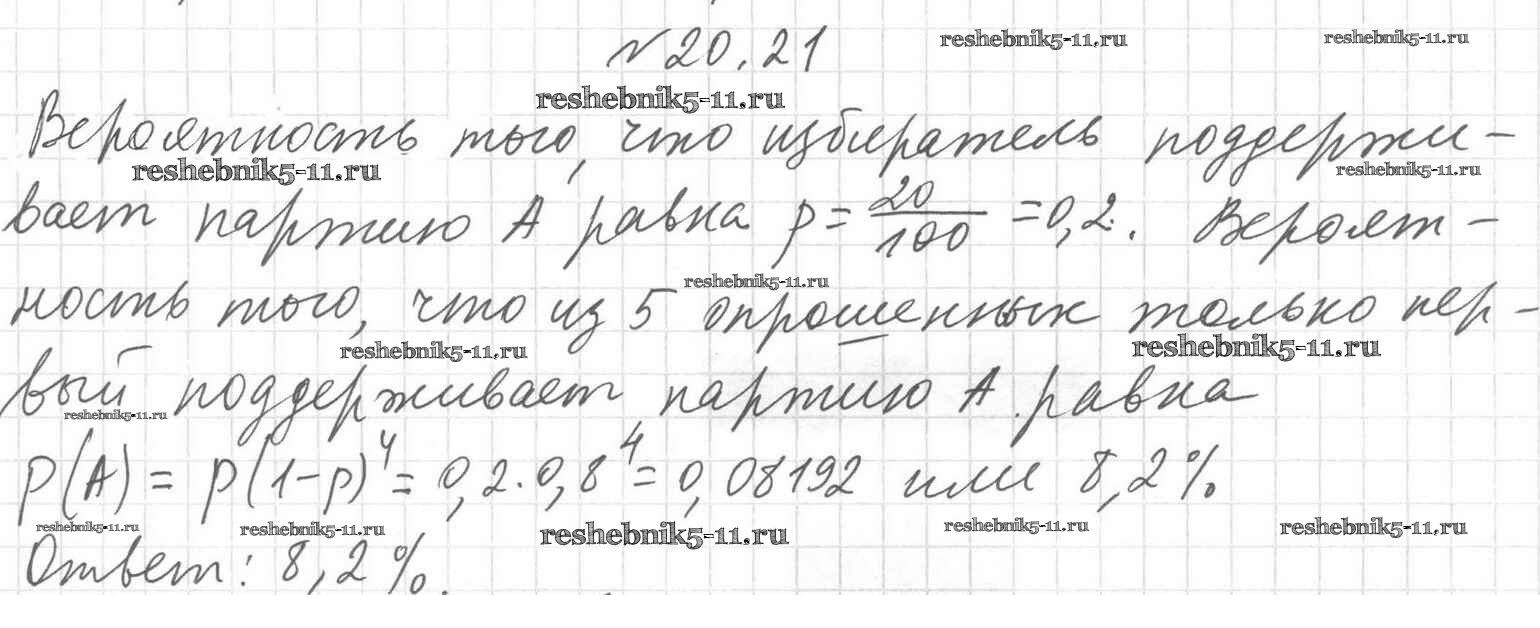 № 20.21
reshebnik5-11.ru
reshebnik5-11.ru
reshebnik5-11.ru
Вероятность того, что избиратель поддержи-
reshebnik5-11.ru
reshebnik5-11.ru
вает партию А равна p = 20/100 = 0,2. Вероят-
reshebnik5-11.ru
ность того, что из 5 опрошенных только пер-
reshebnik5-11.ru
reshebnik5-11.ru
вый поддерживает партию А равна
reshebnik5-11.ru
P(A) = p(1-p)⁴ = 0,2·0,8⁴ = 0,08192 или 8,2%
reshebnik5-11.ru
reshebnik5-11.ru
reshebnik5-11.ru
reshebnik5-11.ru
reshebnik5-11.ru
Ответ: 8,2%.